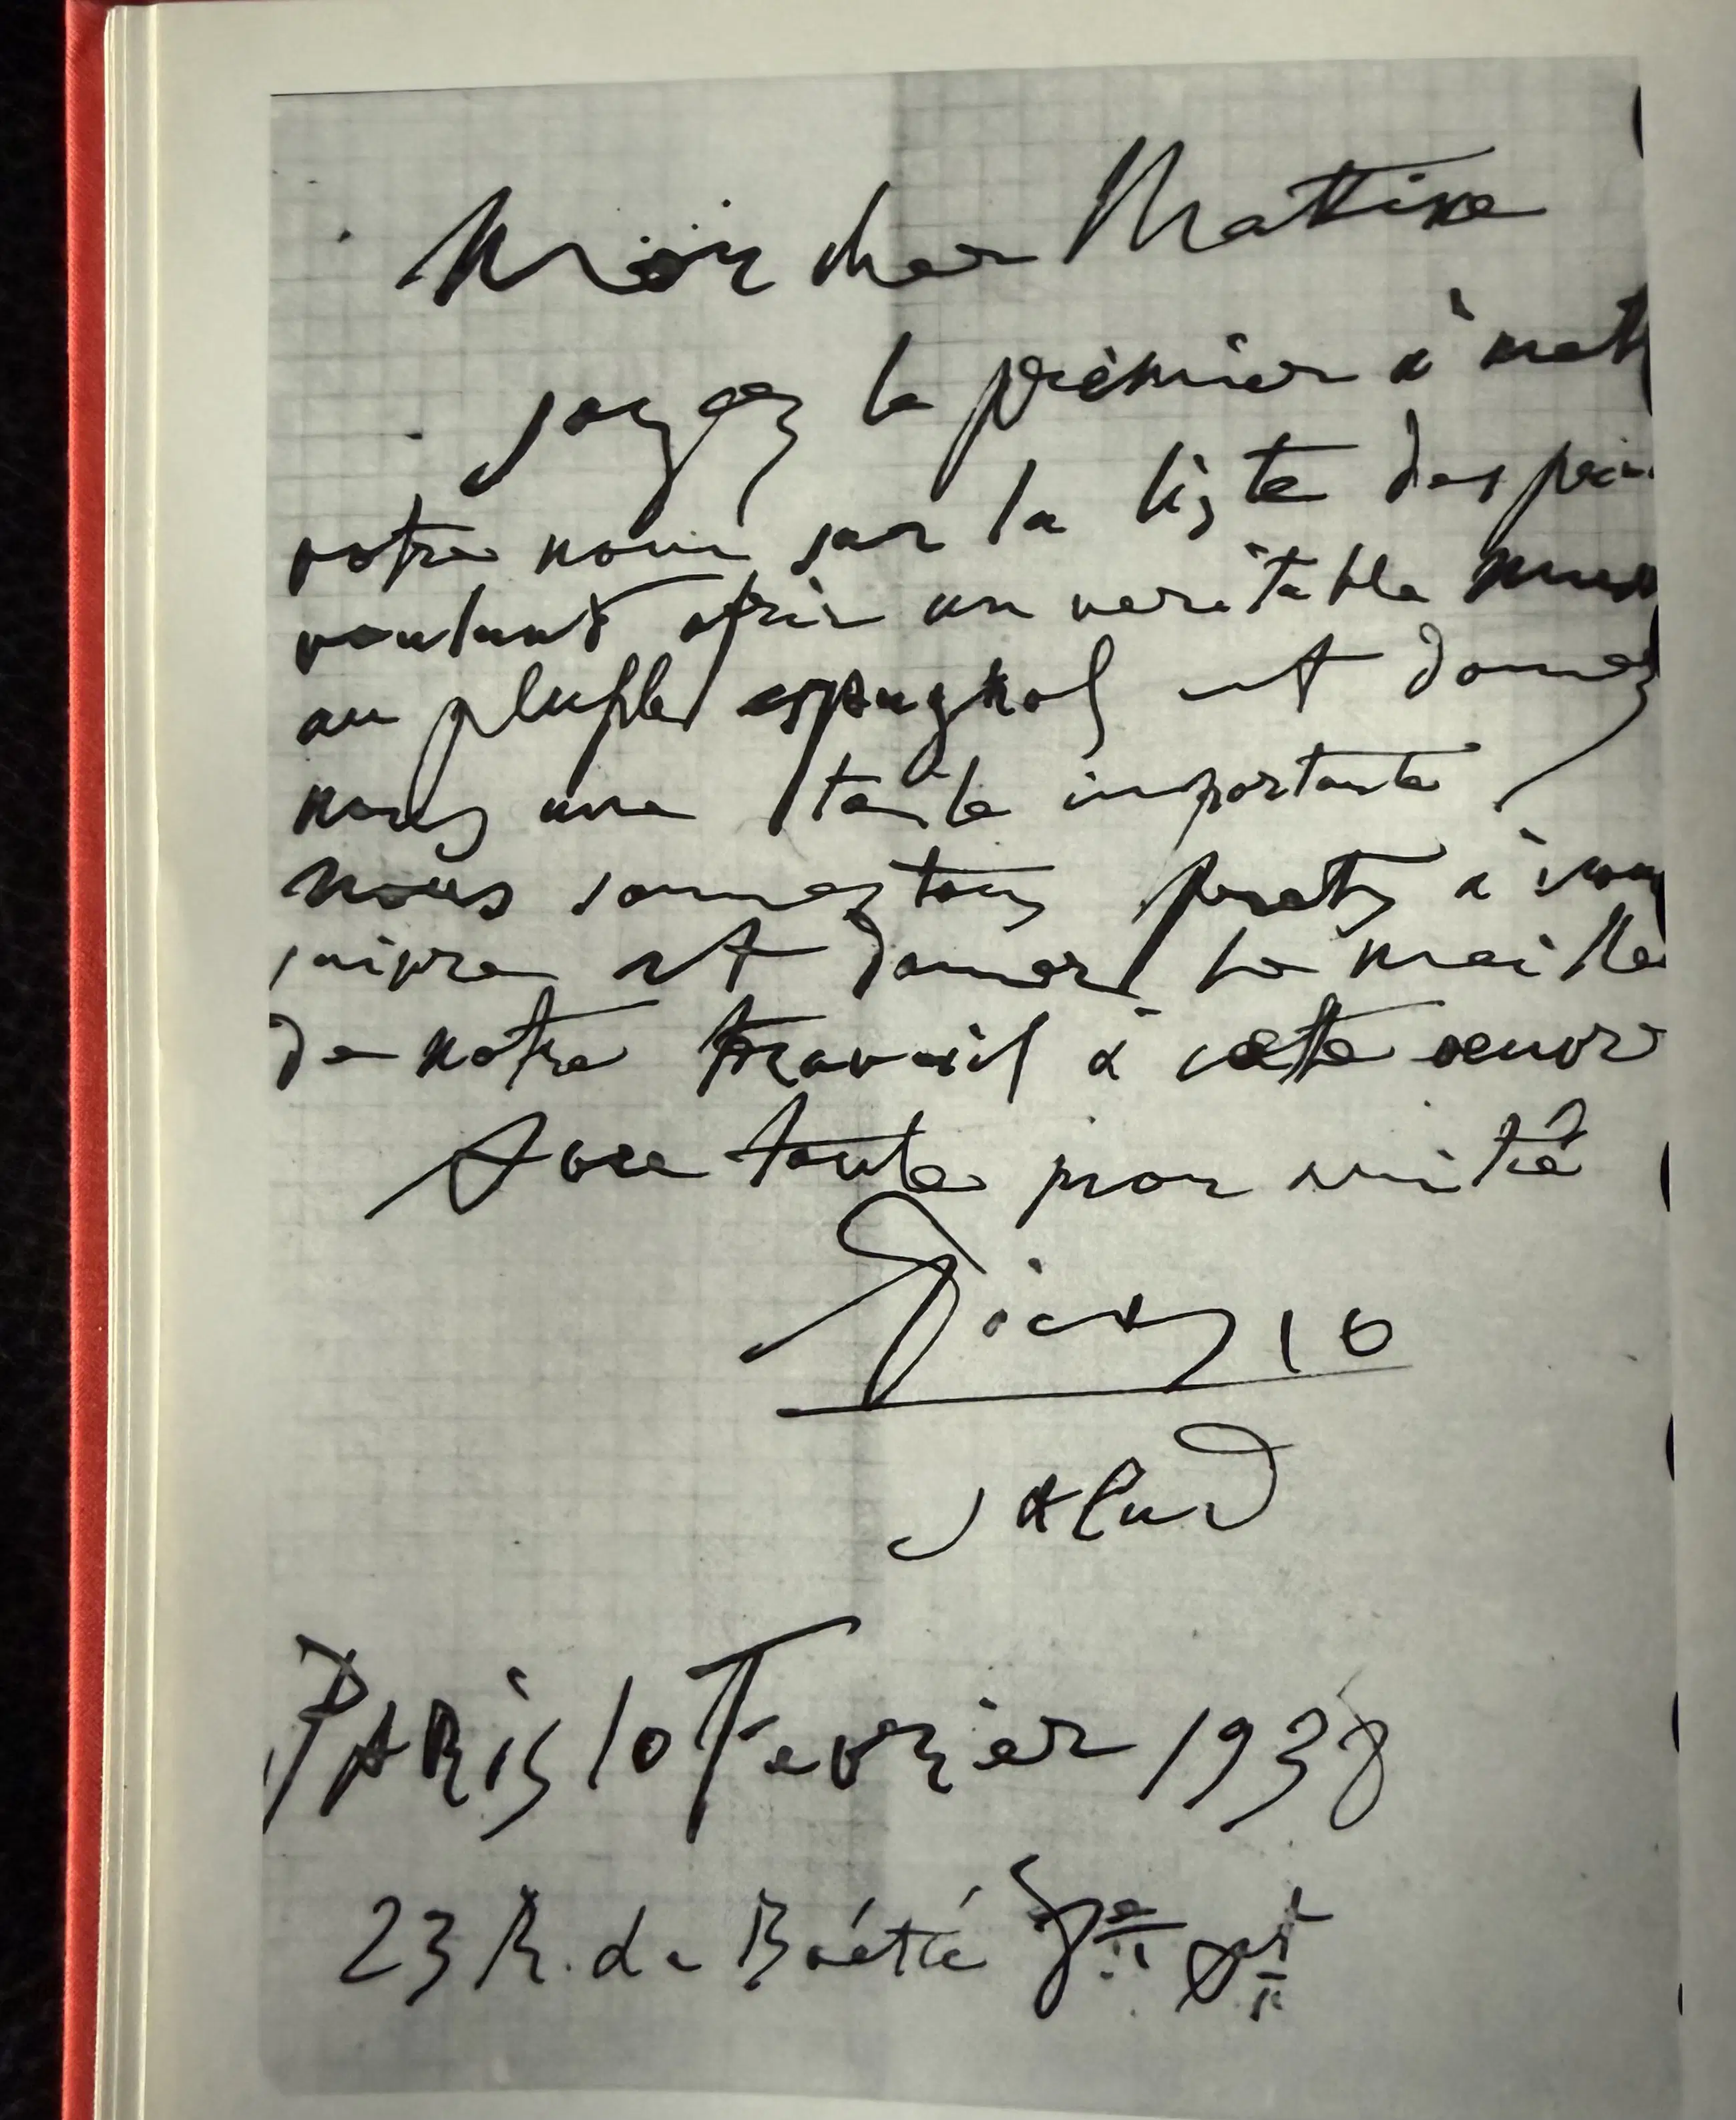 Mon cher Mattise
soyez le premier à mett
votre nom sur la liste des pein
voulant ofrir un veritable muse
au pluple espagnol et donnez
nous une toile importante
nous sommes tous prets à vous
suivre et donner le meille
de notre travail à cette oeuvr
Avec toute mon amitié
Picasso
Salud
PARis 10 Fevrier 1938
23 R. de Boétie 8e